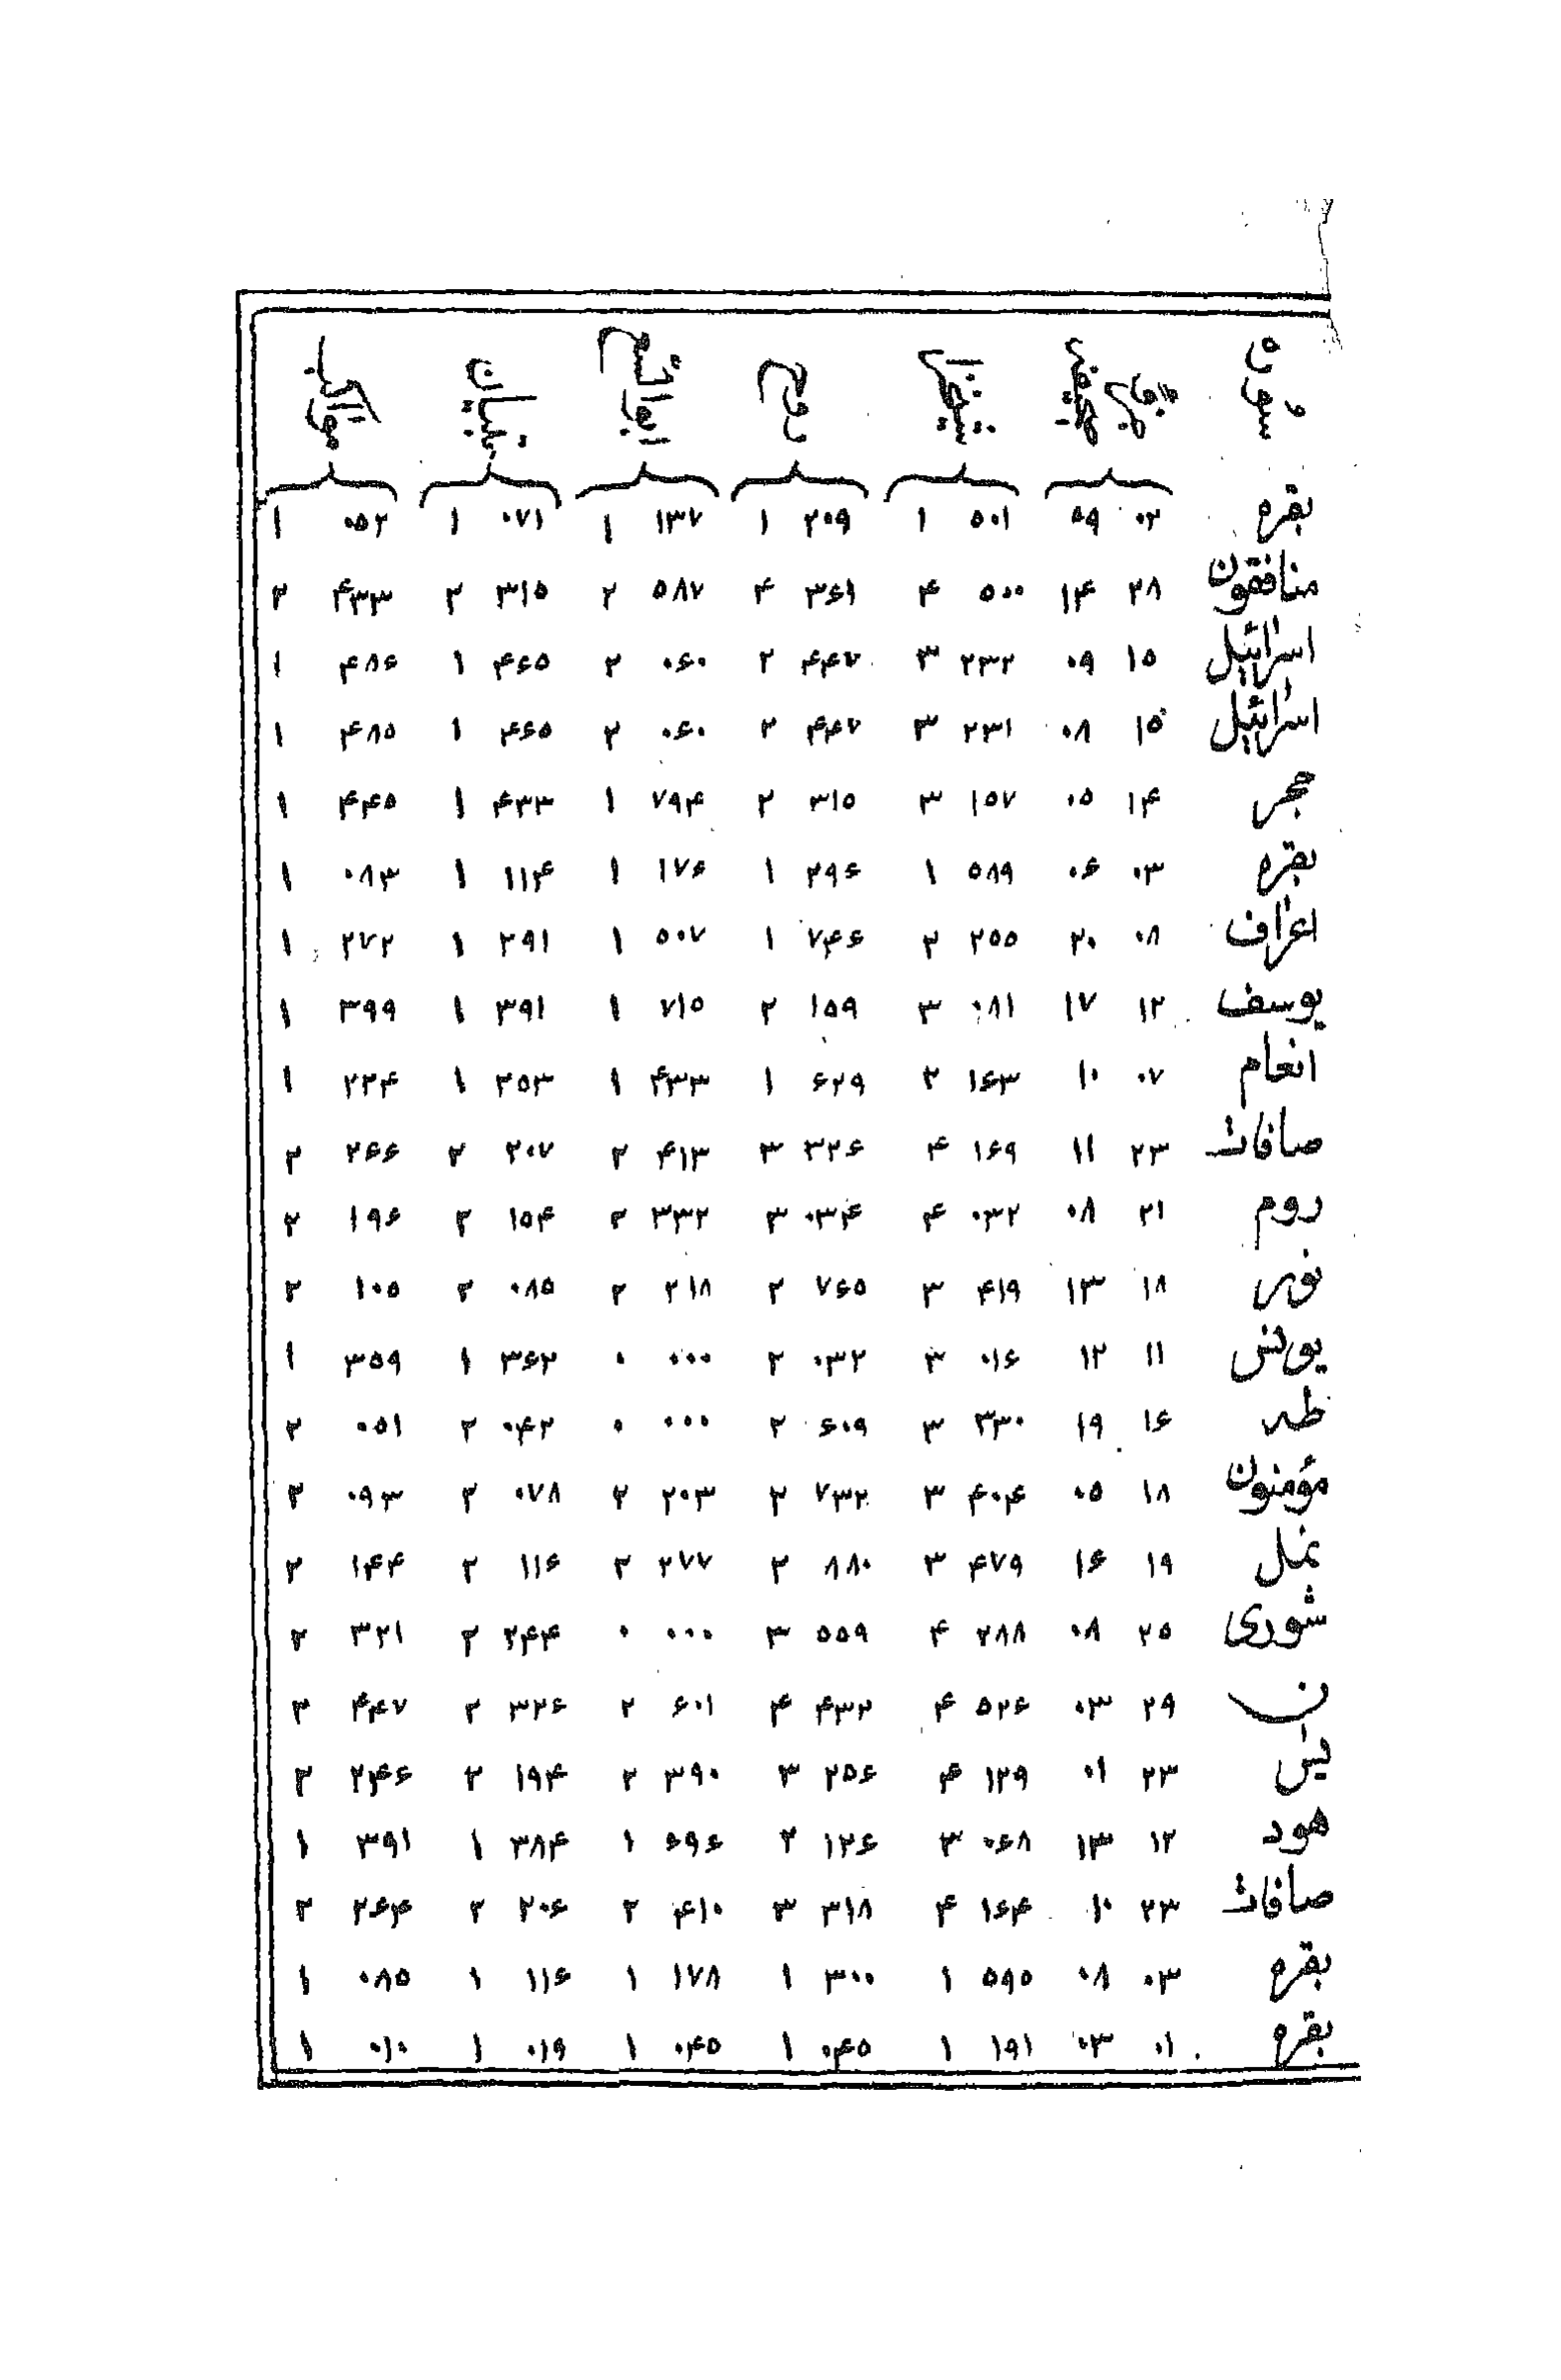 سوره
بقره ۰۲ ۵۹ ۵۰۱ ۱ ۲۰۹ ۱ ۱۳۷ ۱ ۰۷۱ ۱ ۰۵۲ ۱
منافقون ۲۸ ۱۴ ۵۰۰ ۴ ۳۶۱ ۴ ۵۸۷ ۲ ۳۱۵ ۲ ۴۳۳ ۲
اسرائیل ۱۵ ۰۹ ۲۳۲ ۳ ۴۴۷ ۲ ۰۶۰ ۲ ۴۶۵ ۱ ۴۸۶ ۱
اسرائیل ۱۵ ۰۸ ۲۳۱ ۳ ۴۴۷ ۲ ۰۶۰ ۲ ۴۶۵ ۱ ۴۸۵ ۱
حجر ۱۴ ۰۵ ۱۵۷ ۳ ۳۱۵ ۲ ۷۹۴ ۱ ۴۳۳ ۱ ۴۴۵ ۱
بقره ۰۳ ۰۶ ۵۸۹ ۱ ۲۹۶ ۱ ۱۷۶ ۱ ۱۱۴ ۱ ۰۸۳ ۱
اعراف ۰۸ ۲۰ ۲۵۵ ۲ ۷۴۶ ۱ ۵۰۷ ۱ ۲۹۱ ۱ ۲۷۲ ۱
یوسف ۱۲ ۱۷ ۰۸۱ ۳ ۱۵۹ ۲ ۷۱۵ ۱ ۳۹۱ ۱ ۳۹۹ ۱
انعام ۰۷ ۱۰ ۱۶۳ ۲ ۶۲۹ ۱ ۴۳۳ ۱ ۲۵۳ ۱ ۲۲۴ ۱
صافات ۲۳ ۱۱ ۱۶۹ ۴ ۳۲۶ ۳ ۴۱۳ ۲ ۲۰۷ ۲ ۲۶۶ ۲
روم ۲۱ ۰۸ ۰۳۲ ۴ ۰۳۴ ۳ ۳۳۲ ۲ ۱۵۴ ۲ ۱۹۶ ۲
نور ۱۸ ۱۳ ۴۱۹ ۳ ۷۶۵ ۲ ۲۱۸ ۲ ۰۸۵ ۲ ۱۰۵ ۲
یونس ۱۱ ۱۲ ۰۱۶ ۳ ۰۳۲ ۲ ۰۰۰ ۰ ۳۶۲ ۱ ۳۵۹ ۱
طه ۱۶ ۱۹ ۳۳۰ ۳ ۶۰۹ ۲ ۰۰۰ ۰ ۰۴۲ ۲ ۰۵۱ ۲
مؤمنون ۱۸ ۰۵ ۴۰۴ ۳ ۷۳۲ ۲ ۲۰۳ ۲ ۰۷۸ ۲ ۰۹۳ ۲
نمل ۱۹ ۱۶ ۴۷۹ ۳ ۸۸۰ ۲ ۲۷۷ ۲ ۱۱۶ ۲ ۱۴۴ ۲
شوری ۲۵ ۰۸ ۲۸۸ ۴ ۵۵۹ ۳ ۰۰۰ ۰ ۲۴۴ ۲ ۳۲۱ ۲
ن ۲۹ ۰۳ ۵۲۶ ۴ ۴۳۲ ۴ ۶۰۱ ۲ ۳۲۶ ۲ ۴۴۷ ۲
یس ۲۳ ۰۱ ۱۲۹ ۴ ۲۵۶ ۳ ۳۹۰ ۲ ۱۹۴ ۲ ۲۴۶ ۲
هود ۱۲ ۱۳ ۰۶۸ ۳ ۱۲۶ ۲ ۶۹۶ ۱ ۳۸۴ ۱ ۳۹۱ ۱
صافات ۲۳ ۱۰ ۱۶۴ ۴ ۳۱۸ ۳ ۴۱۰ ۲ ۲۰۶ ۲ ۲۶۴ ۲
بقره ۰۳ ۰۸ ۵۹۵ ۱ ۳۰۰ ۱ ۱۷۸ ۱ ۱۱۶ ۱ ۰۸۵ ۱
بقره ۰۱ ۰۳ ۱۹۱ ۱ ۰۴۵ ۱ ۰۴۵ ۱ ۰۱۹ ۱ ۰۱۰ ۱